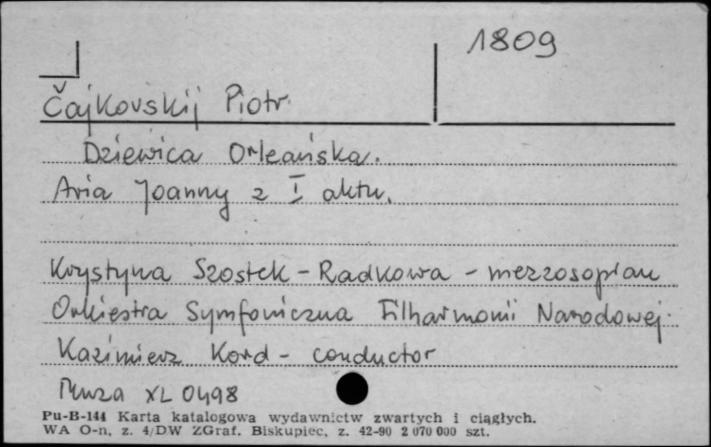 1809
Čajkovskij Piotr
Dziewica Orleańska.
Aria Joanny z I aktu.
Krystyna Szostek-Radkowa - mezzosopran
Orkiestra Symfoniczna Filharmonii Narodowej
Kazimierz Kord - conductor
Muza XL 0498
Pu-B-144 Karta katalogowa wydawnictw zwartych i ciągłych.
WA O-n, z. 4/DW ZGraf. Biskupiec, z. 42-90 2 070 000 szt.